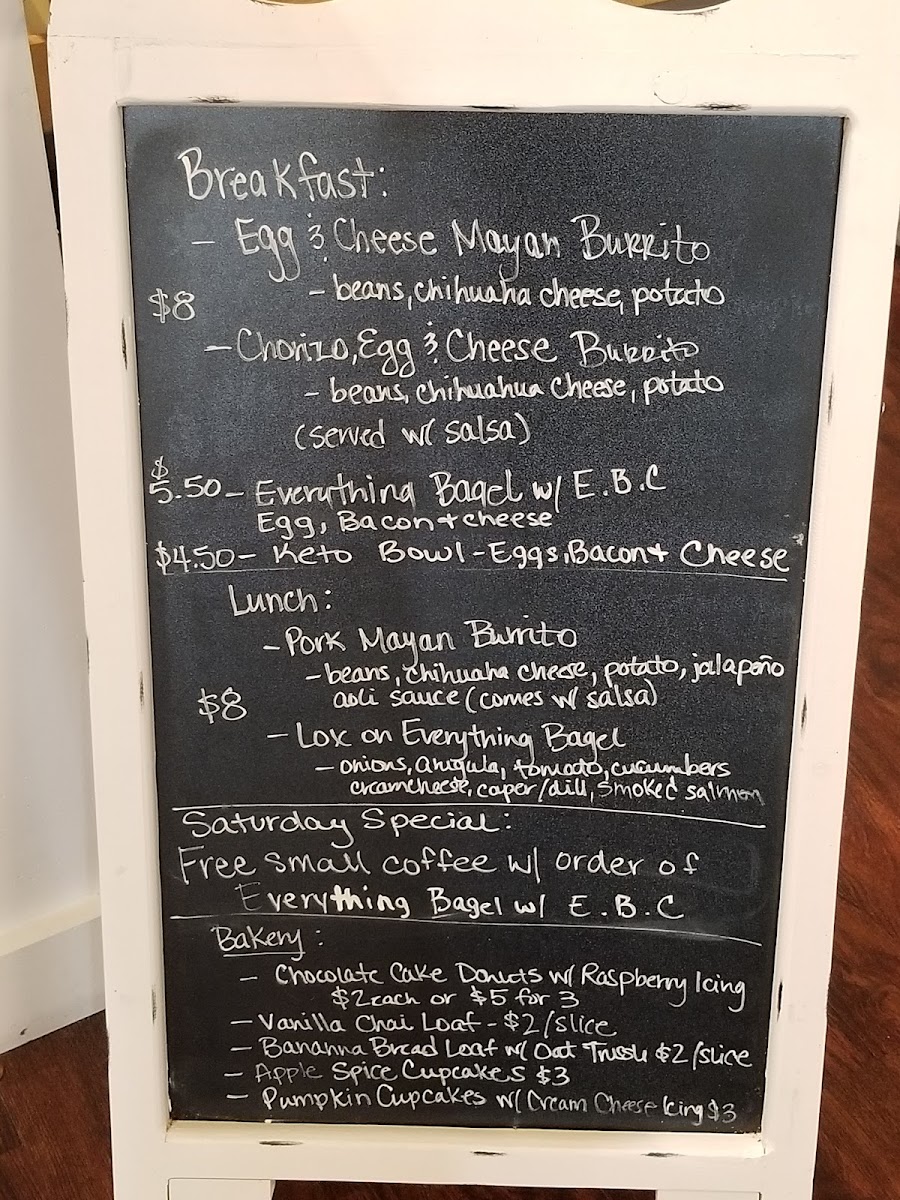 Breakfast:
- Egg & Cheese Mayan Burrito
- beans, chihuaha cheese, potato
$8
- Chorizo, Egg & Cheese Burrito
- beans, chihuahua cheese, potato
(served w/ salsa)
$5.50 - Everything Bagel w/ E.B.C
Egg, Bacon + cheese
$4.50 - Keto Bowl - Eggs, Bacon + Cheese
Lunch:
- Pork Mayan Burrito
- beans, chihuaha cheese, potato, jalapeño
aoli sauce (comes w/ salsa)
$8
- Lox on Everything Bagel
- onions, arugula, tomato, cucumbers
creamcheese, caper/dill, smoked salmon
Saturday Special:
Free small coffee w/ order of
Everything Bagel w/ E.B.C
Bakery:
- Chocolate Cake Donuts w/ Raspberry Icing
$2 each or $5 for 3
- Vanilla Chai Loaf - $2/slice
- Bananna Bread Loaf w/ Oat $2/slice
- Apple Spice Cupcakes $3
- Pumpkin Cupcakes w/ Cream Cheese Icing $3